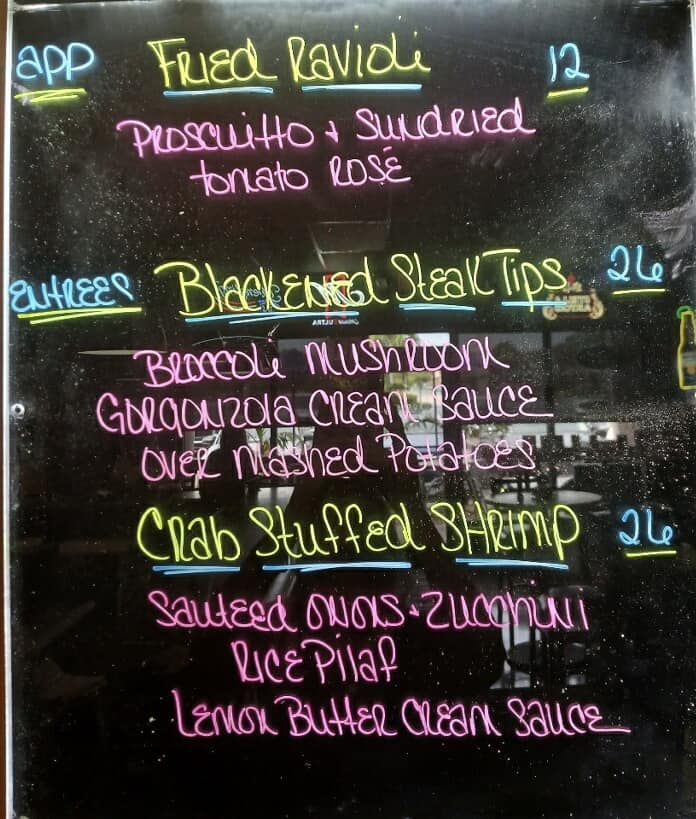 APP Fried Ravioli 12
Proscuitto + Sundried
tomato Rosé
Entrees Blackened Steak Tips 26
Broccoli Mushroom
Gorgonzola Cream Sauce
Over Mashed Potatoes
Crab Stuffed Shrimp 26
Sauteed Onions + Zucchini
Rice Pilaf
Lemon Butter Cream Sauce